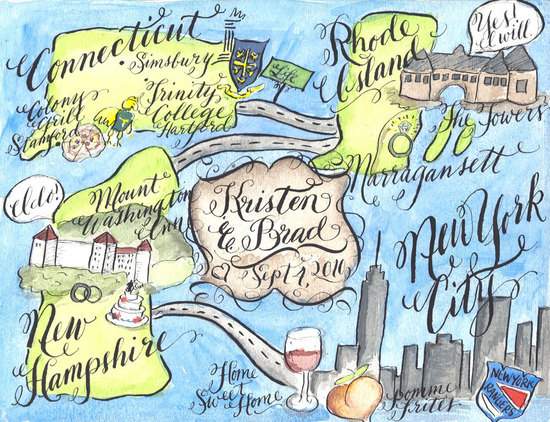 Connecticut
Simsbury
Trinity
College
Hartford
Colony
Grill
Stamford
Life
Rhode
Island
Yes! I
will
The Towers
Narragansett
I do!
Mount
Washington
Inn
Kristen
& Brad
Sept
New York
City
New
Hampshire
Home
Sweet Home
Pomme
Frites
NEW YORK
RANGERS